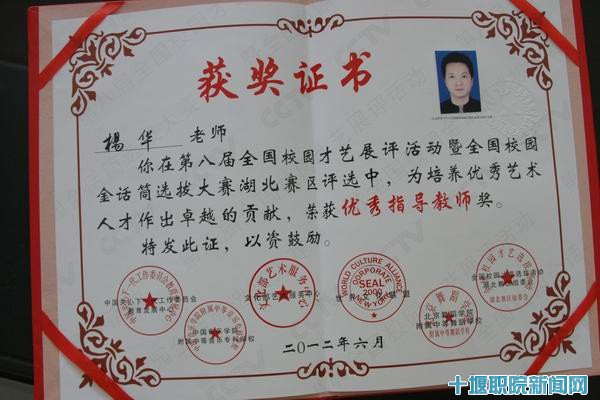 获奖证书
楊华 老师
你在第八届全国校园才艺展评活动暨全国校园
金话筒选拔大赛湖北赛区评选中，为培养优秀艺术
人才作出卓越的贡献，荣获优秀指导教师奖。
特发此证，以资鼓励。
中国关心下一代工作委员会
教育发展中心
中国音乐学院
附属中等音乐专科学校
文化部艺术服务中心
WORLD CULTURE ALLIANCE
CORPORATE
SEAL
2000
NEW YORK
北京舞蹈学院
附属中等舞蹈学校
全国校园才艺选拔活动
湖北赛区组委会
二〇一二年六月
十堰职院新闻网